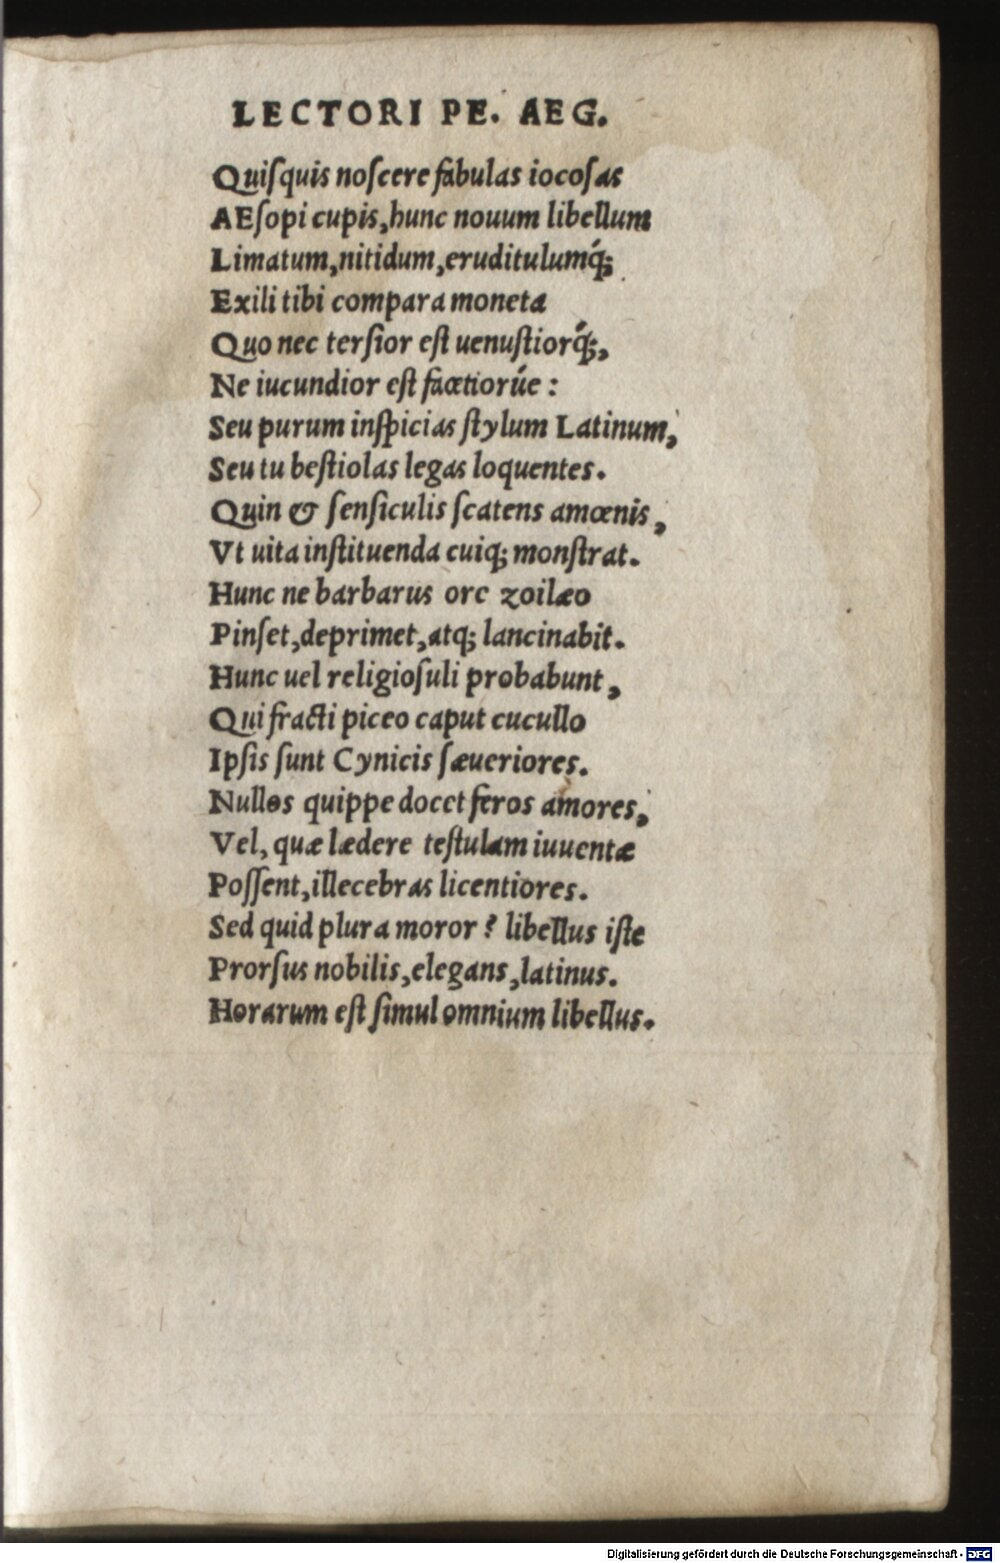 LECTORI PE. AEG.
Quiſquis noſcere fabulas iocoſas
AEſopi cupis, hunc nouum libellum
Limatum, nitidum, eruditulumq́;
Exili tibi compara moneta
Quo nec terſior eſt uenuſtiorq́;,
Ne iucundior eſt facetiorúe :
Seu purum inſpicias ſtylum Latinum,
Seu tu beſtiolas legas loquentes.
Quin & ſenſiculis ſcatens amœnis,
Vt uita inſtituenda cuiq; monſtrat.
Hunc ne barbarus ore zoilæo
Pinſet, deprimet, atq; lancinabit.
Hunc uel religioſuli probabunt,
Qui fracti piceo caput cucullo
Ipſis ſunt Cynicis ſæueriores.
Nullos quippe docet feros amores,
Vel, quæ lædere teſtulam iuuentæ
Poſſent, illecebras licentiores.
Sed quid plura moror? libellus iſte
Prorſus nobilis, elegans, latinus.
Horarum eſt ſimul omnium libellus.
Digitalisierung gefördert durch die Deutsche Forschungsgemeinschaft - DFG